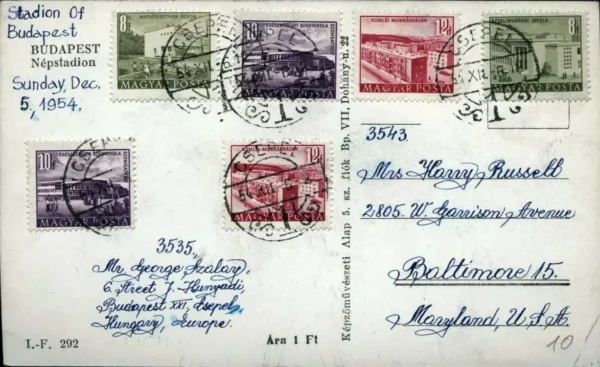 Stadion Of
Budapest
BUDAPEST
Népstadion
Sunday, Dec.
5, 1954.
8f
MAGYAR POSTA
CSEPEL
10f
MAGYAR POSTA
KOMLÓI MUNKÁSHÁZAK
12f
MAGYAR POSTA
8f
MAGYAR POSTA
CSEPEL
10f
MAGYAR POSTA
KOMLÓI MUNKÁSHÁZAK
12f
MAGYAR POSTA
CSEPEL
3535.
Mr George Szalay,
6. Street J. Hunyadi
Budapest XXI, Csepel,
Hungary, Europe.
I.-F. 292
Ára 1 Ft
Képzőművészeti Alap 5. sz. fiók Bp. VII, Dohány-u. 22
3543.
Mrs Harry Russell
2805. W. Garrison Avenue
Baltimore 15.
Maryland, U.S.A.
10!